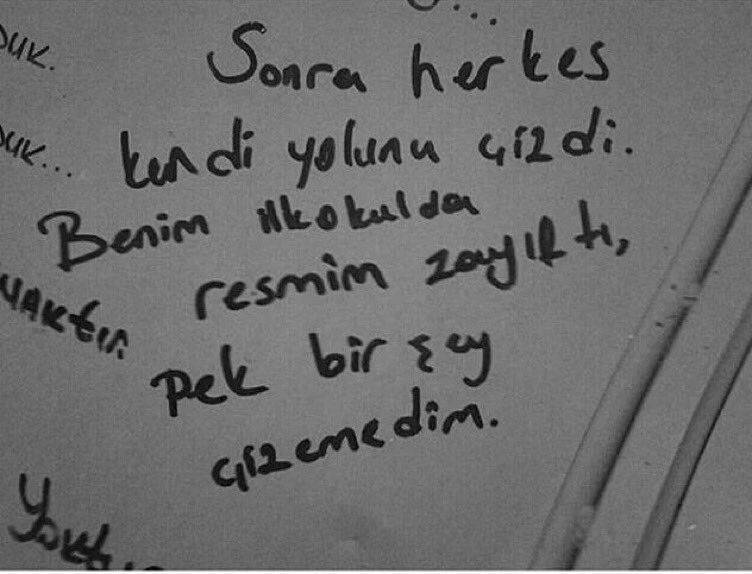 Sonra herkes
kendi yolunu çizdi.
Benim ilkokulda
resmim zayıftı,
pek bir şey
çizemedim.